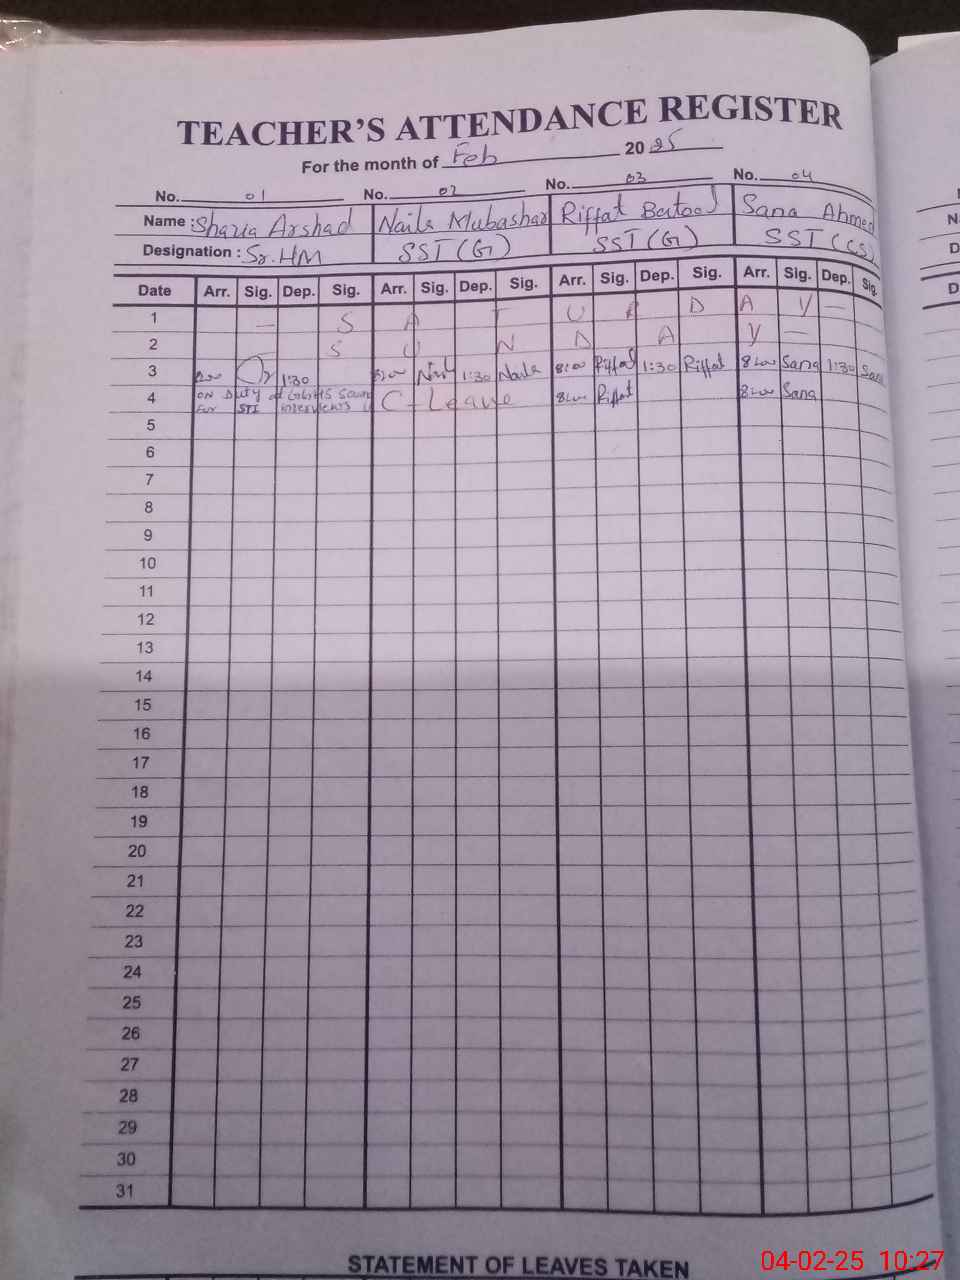 TEACHER'S ATTENDANCE REGISTER
For the month of Feb 2025
No. 01 No. 02 No. 03 No. 04
Name : Shazia Arshad Naila Mubashar Riffat Batool Sana Ahmed
Designation : Sr. HM SST (G) SST (G) SST (CS)
Date Arr. Sig. Dep. Sig. Arr. Sig. Dep. Sig. Arr. Sig. Dep. Sig. Arr. Sig. Dep. Sig.
1 — S A T U R D A Y —
2 — S U N D A Y —
3 1:30 1:30 Naila 8:00 Riffat 1:30 Riffat 8:00 Sana 1:30 Sana
4 ON Duty at C-Leave 8:00 Riffat 8:00 Sana
For STI interviews
5
6
7
8
9
10
11
12
13
14
15
16
17
18
19
20
21
22
23
24
25
26
27
28
29
30
31
STATEMENT OF LEAVES TAKEN
04-02-25 10:27